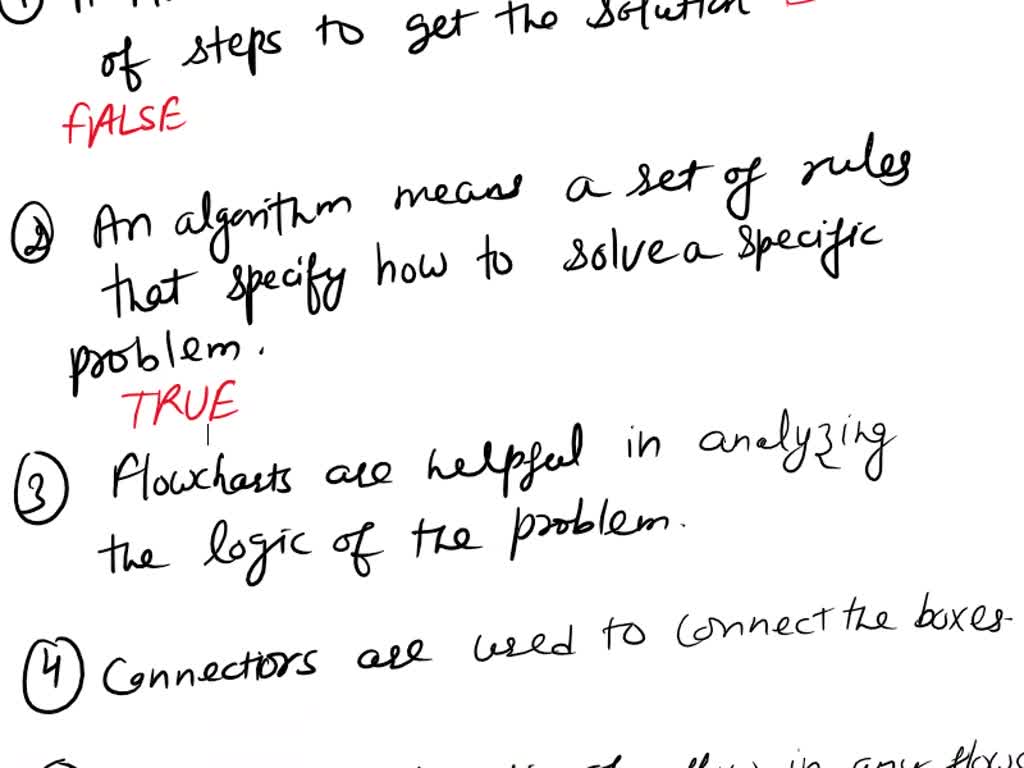 of steps to get the solution
FALSE
② An algorithm means a set of rules
that specify how to solve a specific
problem.
TRUE
③ Flowcharts are helpful in analyzing
the logic of the problem.
④ Connectors are used to connect the boxes.
in any